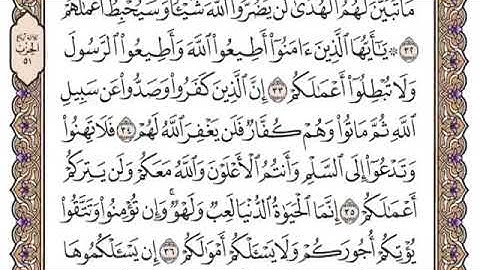 مَا تَبَيَّنَ لَهُمُ ٱلْهُدَىٰ لَن يَضُرُّوا۟ ٱللَّهَ شَيْـًٔا وَسَيُحْبِطُ أَعْمَـٰلَهُمْ
٣٢ ۞ يَـٰٓأَيُّهَا ٱلَّذِينَ ءَامَنُوٓا۟ أَطِيعُوا۟ ٱللَّهَ وَأَطِيعُوا۟ ٱلرَّسُولَ
وَلَا تُبْطِلُوٓا۟ أَعْمَـٰلَكُمْ ٣٣ إِنَّ ٱلَّذِينَ كَفَرُوا۟ وَصَدُّوا۟ عَن سَبِيلِ
ٱللَّهِ ثُمَّ مَاتُوا۟ وَهُمْ كُفَّارٌ فَلَن يَغْفِرَ ٱللَّهُ لَهُمْ ٣٤ فَلَا تَهِنُوا۟
وَتَدْعُوٓا۟ إِلَى ٱلسَّلْمِ وَأَنتُمُ ٱلْأَعْلَوْنَ وَٱللَّهُ مَعَكُمْ وَلَن يَتِرَكُمْ
أَعْمَـٰلَكُمْ ٣٥ إِنَّمَا ٱلْحَيَوٰةُ ٱلدُّنْيَا لَعِبٌ وَلَهْوٌ ۚ وَإِن تُؤْمِنُوا۟ وَتَتَّقُوا۟
يُؤْتِكُمْ أُجُورَكُمْ وَلَا يَسْـَٔلْكُمْ أَمْوَٰلَكُمْ ٣٦ إِن يَسْـَٔلْكُمُوهَا
الحزب
٥١